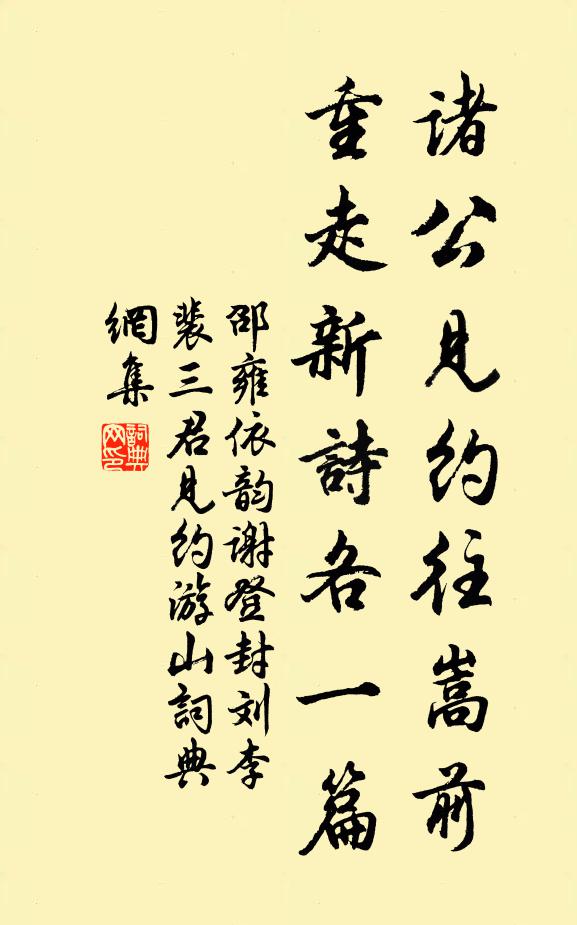 诸公见约往嵩前
重走新詩各一篇
邵雍依韵谢登封刘李
裴三君见约游山詞典
網集
詞典網印